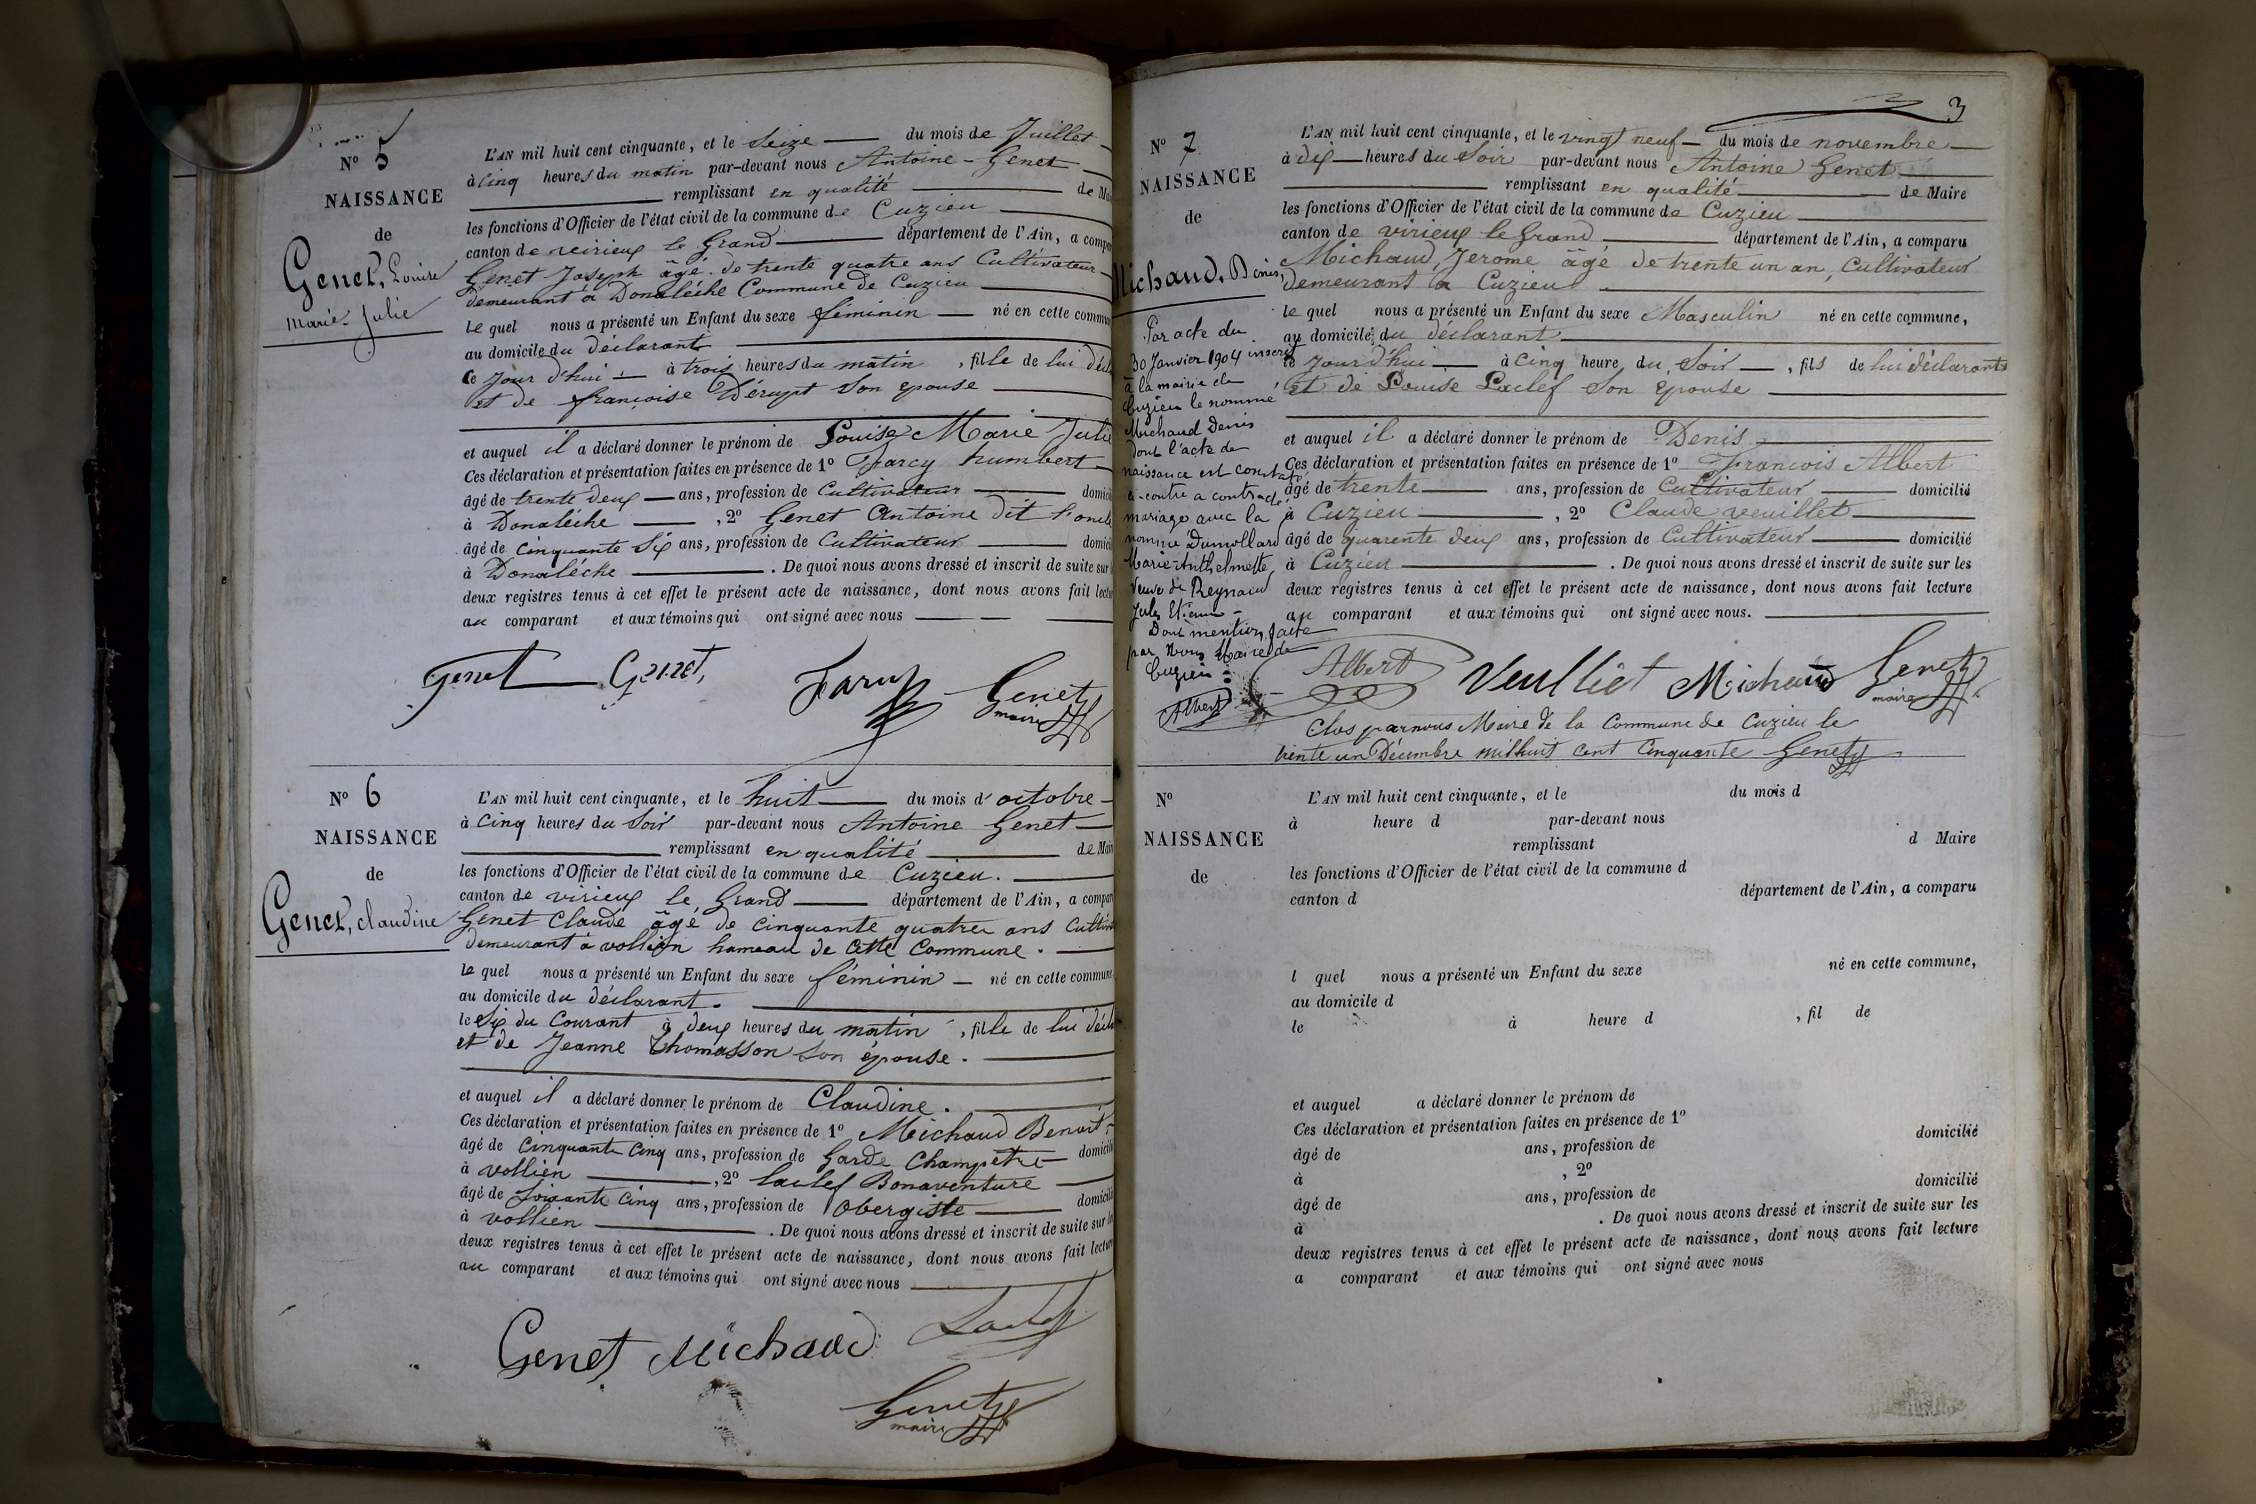 N° 5
NAISSANCE
de
Genet, Louise
Marie-Julie
L'AN mil huit cent cinquante, et le Seize du mois de Juillet
à Cinq heures du matin par-devant nous Antoine Genet
remplissant en qualité de Mai
les fonctions d'Officier de l'état civil de la commune de Cuzieu
canton de virieux le Grand département de l'Ain, a compa
Genet Joseph âgé de trente quatre ans Cultivateur
demeurant à Donaléche Commune de Cuzieu
le quel nous a présenté un Enfant du sexe féminin né en cette commu
au domicile du déclarant
ce jour d'hui à trois heures du matin, fille de lui décla
et de françoise Dérupt son epouse
et auquel il a déclaré donner le prénom de Louise Marie Julie
Ces déclaration et présentation faites en présence de 1° Farcy humbert
âgé de trente deux ans, profession de Cultivateur domici
à Donaléche, 2° Genet Antoine dit l'oncle
âgé de cinquante Six ans, profession de Cultivateur domici
à Donaléche. De quoi nous avons dressé et inscrit de suite sur l
deux registres tenus à cet effet le présent acte de naissance, dont nous avons fait lectu
au comparant et aux témoins qui ont signé avec nous
Genet Genet, Farcy Genet
maire
N° 6
NAISSANCE
de
Genet, claudine
L'AN mil huit cent cinquante, et le huit du mois d'octobre
à Cinq heures du Soir par-devant nous Antoine Genet
remplissant en qualité de Mair
les fonctions d'Officier de l'état civil de la commune de Cuzieu.
canton de virieux le Grand département de l'Ain, a compar
Genet Claude âgé de cinquante quatre ans Cultiv
demeurant à vollien hameau de Cette Commune.
le quel nous a présenté un Enfant du sexe féminin né en cette commune
au domicile du déclarant.
le Six du Courant à deux heures du matin, fille de lui décla
et de Jeanne Thomasson son épouse.
et auquel il a déclaré donner le prénom de Claudine.
Ces déclaration et présentation faites en présence de 1° Michaud Benoit
âgé de Cinquante Cinq ans, profession de Garde Champêtre domicilié
à vollien, 2° Laclef Bonaventure
âgé de Soixante Cinq ans, profession de Obergiste domicilié
à vollien. De quoi nous avons dressé et inscrit de suite sur le
deux registres tenus à cet effet le présent acte de naissance, dont nous avons fait lecture
au comparant et aux témoins qui ont signé avec nous
Genet Michaud Laclef
Genet
maire
3
N° 7
NAISSANCE
de
Michaud, Denis,
Par acte du
30 Janvier 1904 inscrit
à la mairie de
Cuzieu le nommé
Michaud Denis
dont l'acte de
naissance est constaté
ci-contre a contracté
mariage avec la
nommé Dumollard
Marie-Anthelmette
Veuve de Reynaud
Jules Etienne
Dont mention faite
par Nous Maire de
Cuzieu
Albert
L'AN mil huit cent cinquante, et le vingt neuf du mois de novembre
à dix heures du Soir par-devant nous Antoine Genet
remplissant en qualité de Maire
les fonctions d'Officier de l'état civil de la commune de Cuzieu
canton de virieux le Grand département de l'Ain, a comparu
Michaud, Jerome âgé de trente un an, Cultivateur
demeurant à Cuzieu
le quel nous a présenté un Enfant du sexe Masculin né en cette commune,
au domicile du déclarant
ce jourd'hui à Cinq heure du Soir, fils de lui déclarant
et de Louise Laclef Son epouse
et auquel il a déclaré donner le prénom de Denis
Ces déclaration et présentation faites en présence de 1° Francois Albert
âgé de trente ans, profession de Cultivateur domicilié
à Cuzieu, 2° Claude veuillet
âgé de quarente deux ans, profession de Cultivateur domicilié
à Cuzieu. De quoi nous avons dressé et inscrit de suite sur les
deux registres tenus à cet effet le présent acte de naissance, dont nous avons fait lecture
au comparant et aux témoins qui ont signé avec nous.
Albert Veulliet Michaud Genet
maire
Clos par nous Maire de la Commune de Cuzieu le
trente un Décembre mil huit cent Cinquante Genet
N°
NAISSANCE
de
L'AN mil huit cent cinquante, et le du mois d
à heure d par-devant nous
remplissant d Maire
les fonctions d'Officier de l'état civil de la commune d
canton d département de l'Ain, a comparu
l quel nous a présenté un Enfant du sexe né en cette commune,
au domicile d
le à heure d, fil de
et auquel a déclaré donner le prénom de
Ces déclaration et présentation faites en présence de 1°
âgé de ans, profession de domicilié
à, 2°
âgé de ans, profession de domicilié
à. De quoi nous avons dressé et inscrit de suite sur les
deux registres tenus à cet effet le présent acte de naissance, dont nous avons fait lecture
a comparant et aux témoins qui ont signé avec nous